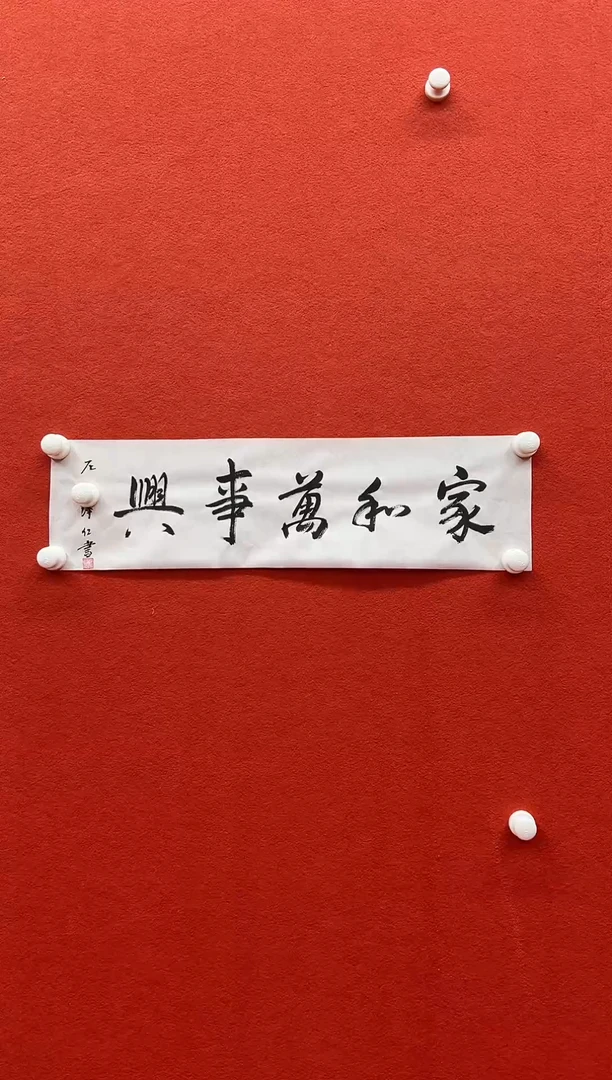 家和萬事興
左
仁書